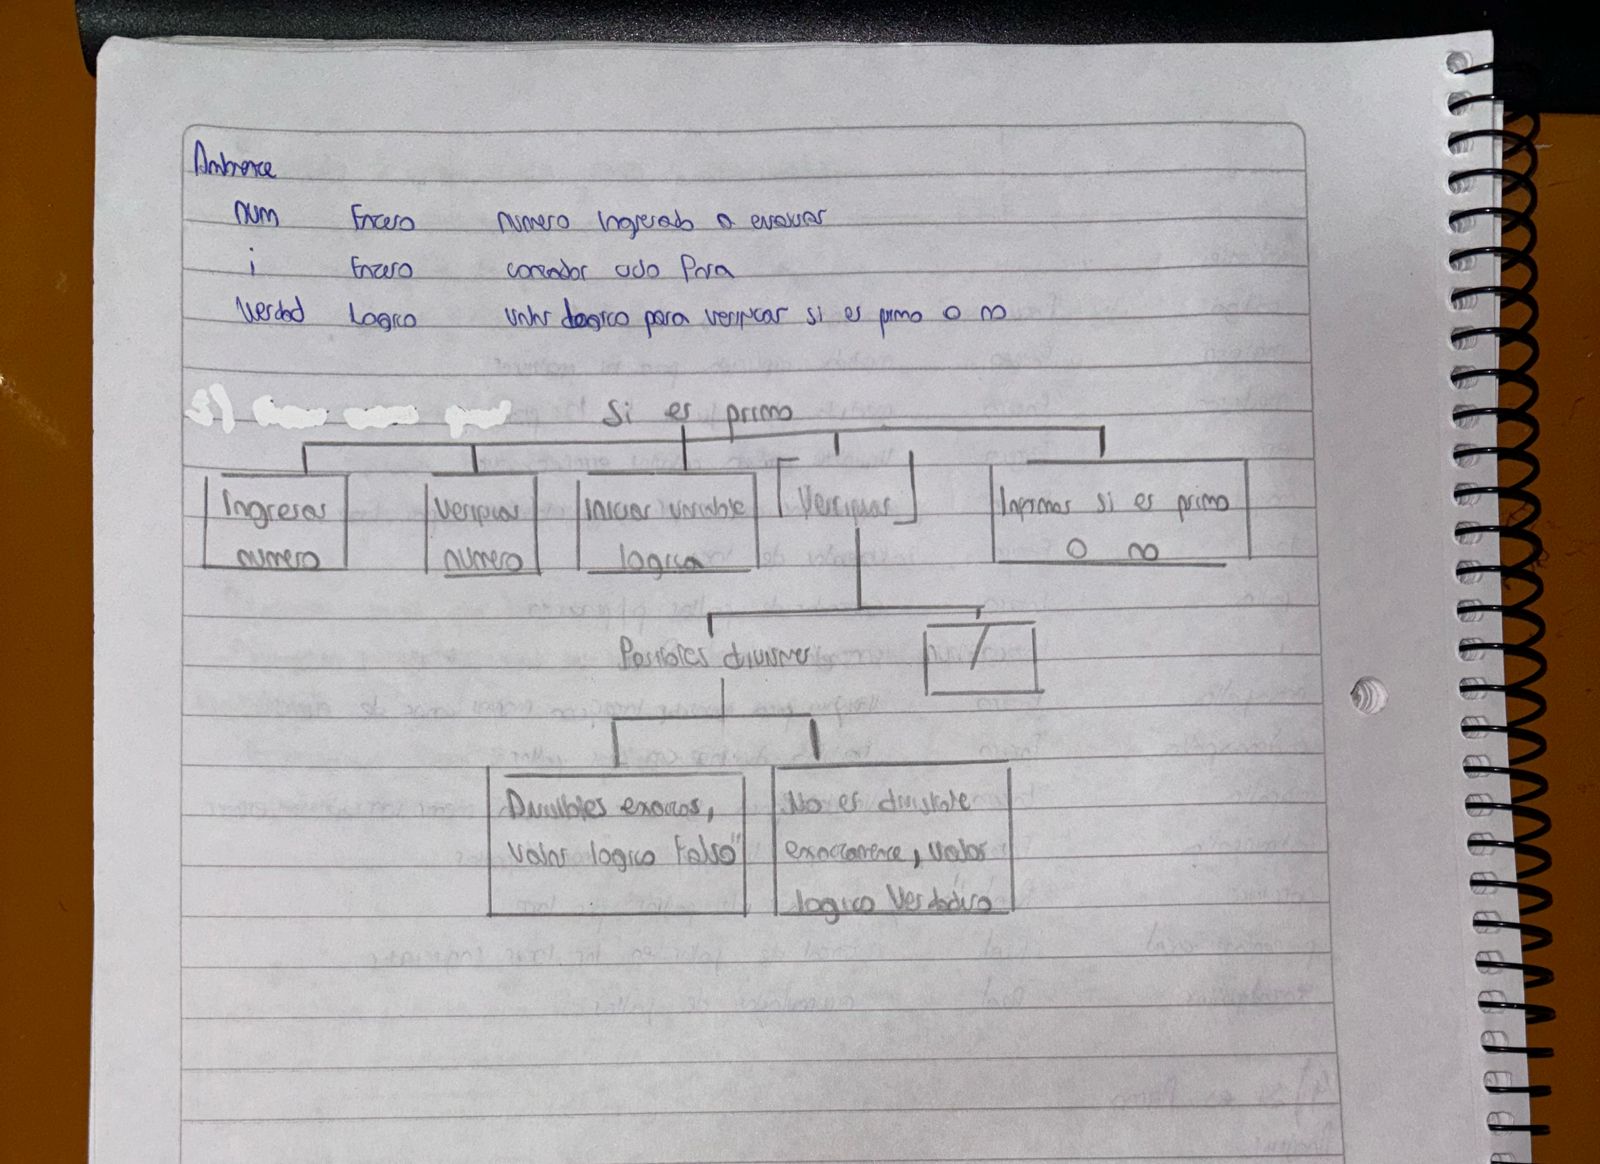 Ambiente
num Entero numero Ingresado a evaluar
i Entero contador ciclo Para
Verdad Logico valor logico para verificar si es primo o no
3)
Si es primo
Ingresar numero
Verificar numero
Iniciar variable logica
Verificar
Imprimir si es primo o no
Posibles divisores
/
Divisibles exactos, valor logico Falso"
No es divisible exactamente, valor logico Verdadero